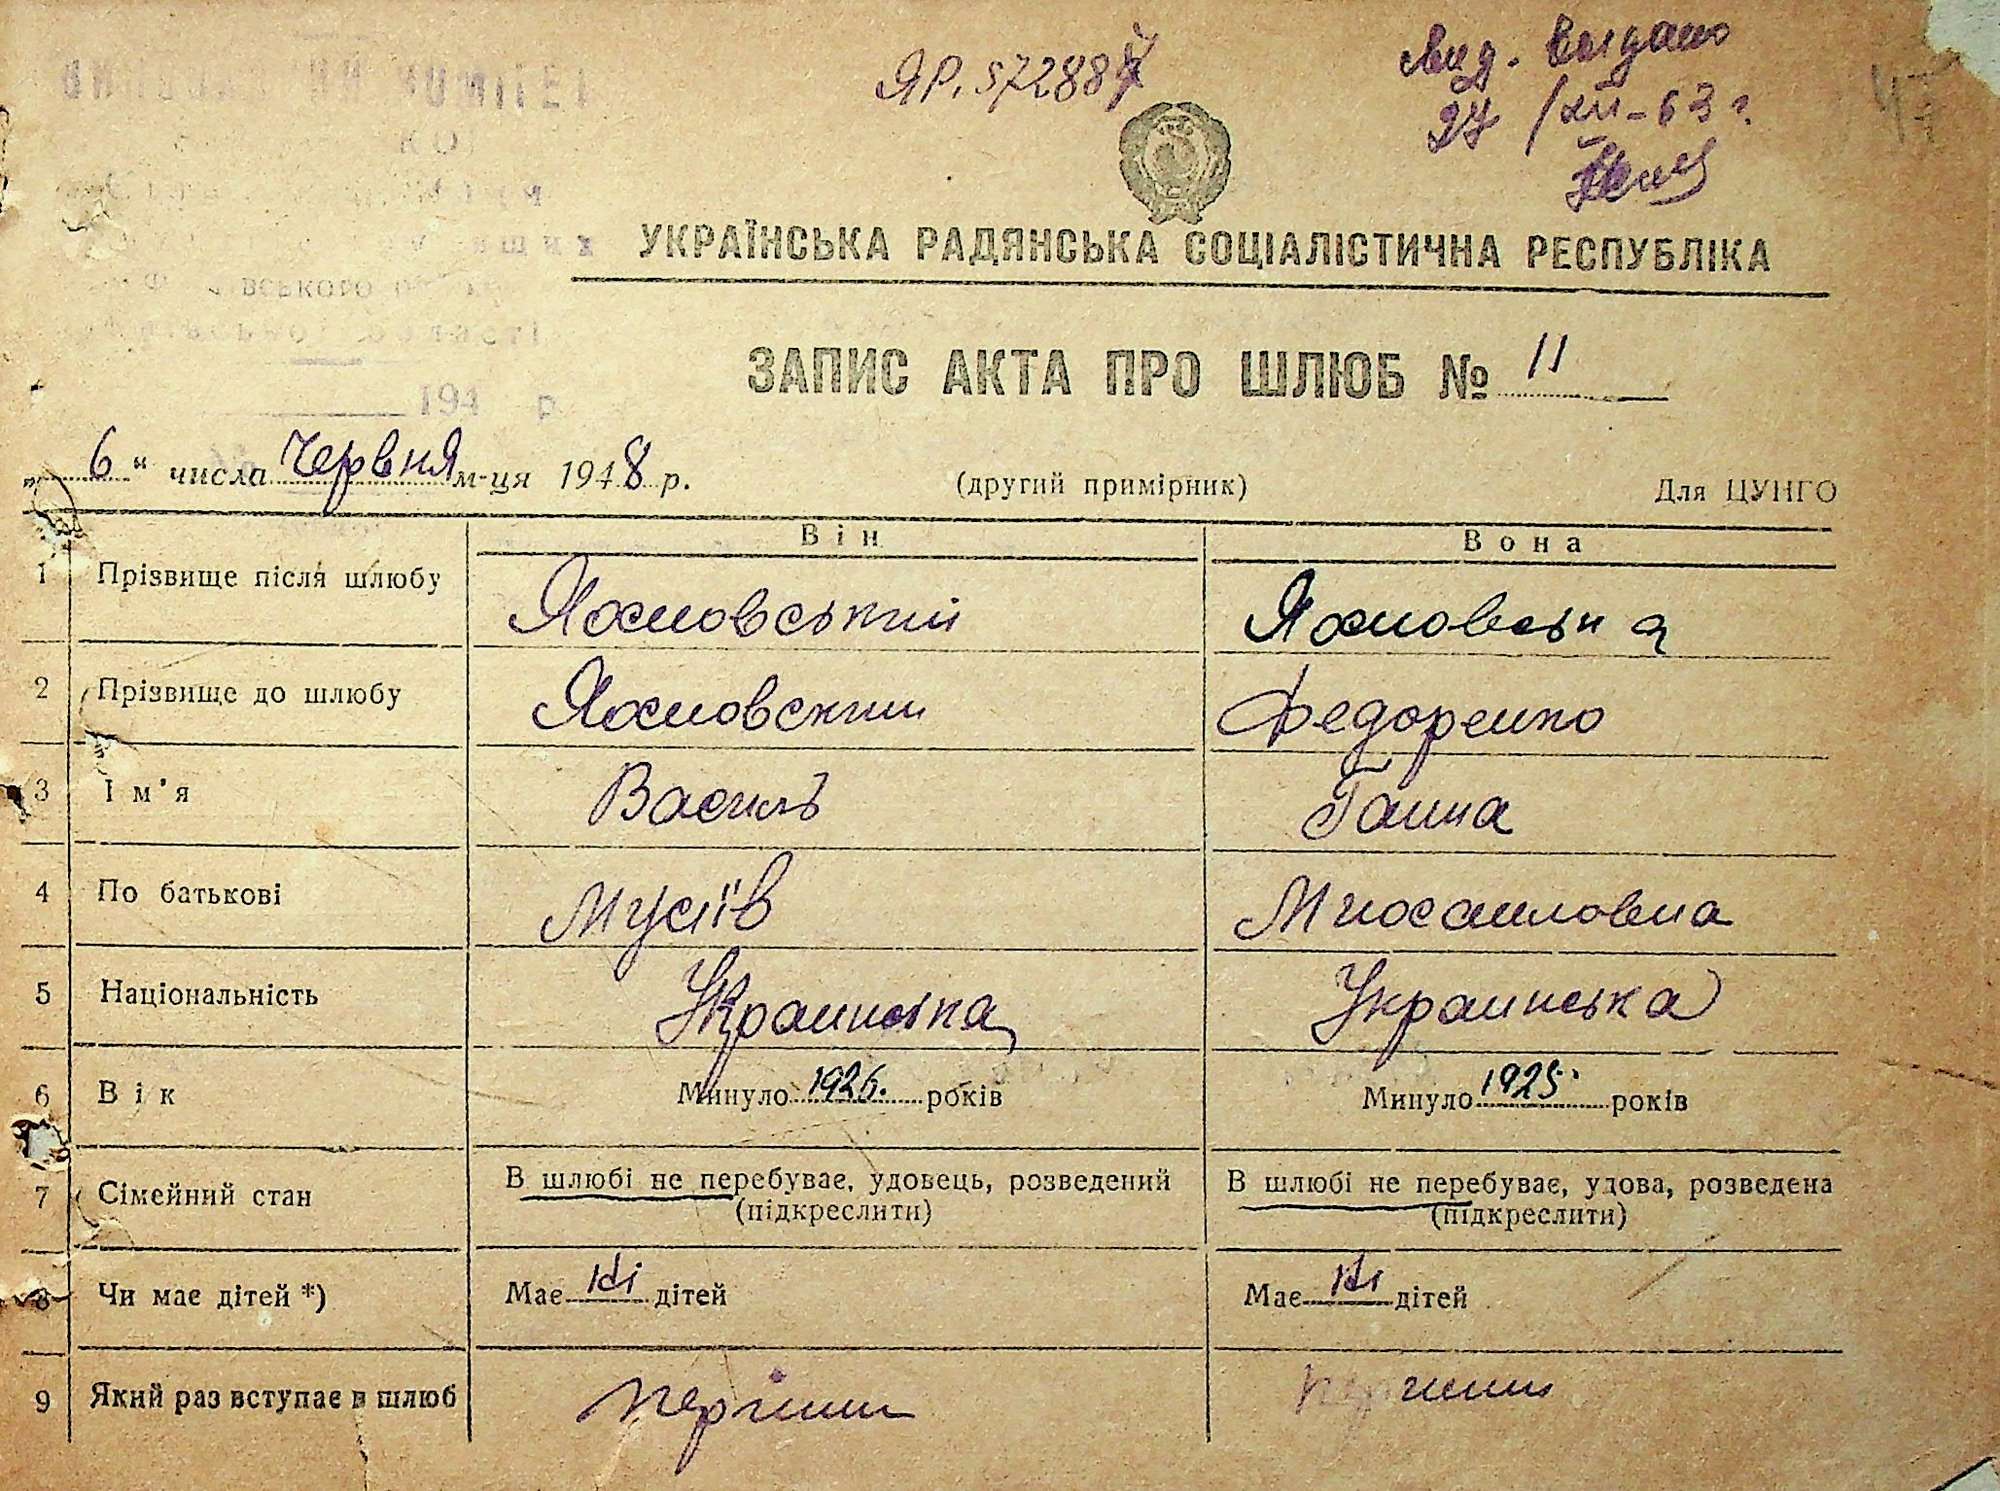 ЯР. 572887
Выдано
27/XII-63 г.
УКРАЇНСЬКА РАДЯНСЬКА СОЦІАЛІСТИЧНА РЕСПУБЛІКА
ЗАПИС АКТА ПРО ШЛЮБ № 11
„6“ числа Червня м-ця 1948 р. (другий примірник) Для ЦУНГО
Він Вона
1 Прізвище після шлюбу Яхновський Яхновська
2 Прізвище до шлюбу Яхновский Федоренко
3 Ім’я Василь Ганна
4 По батькові Мусіїв Михаиловна
5 Національність Украинська Украинська
6 Вік Минуло 1926. років Минуло 1925. років
7 Сімейний стан В шлюбі не перебуває, удовець, розведений В шлюбі не перебуває, удова, розведена
(підкреслити) (підкреслити)
8 Чи має дітей *) Має ні дітей Має ні дітей
9 Який раз вступає в шлюб перший перший